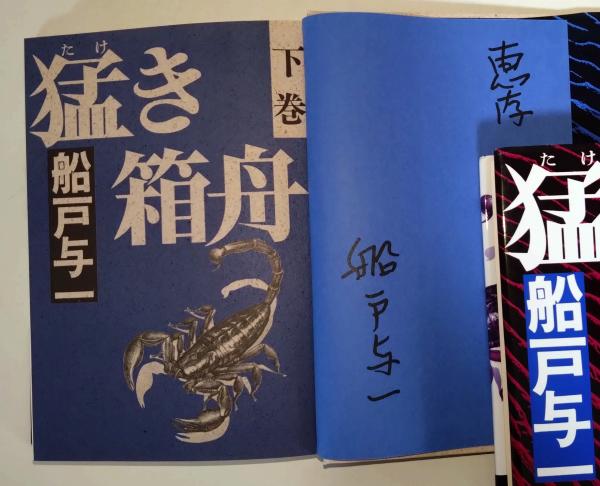 たけ
猛き
箱舟
下巻
船戸与一
恵存
船戸与一
たけ
猛
船戸与一